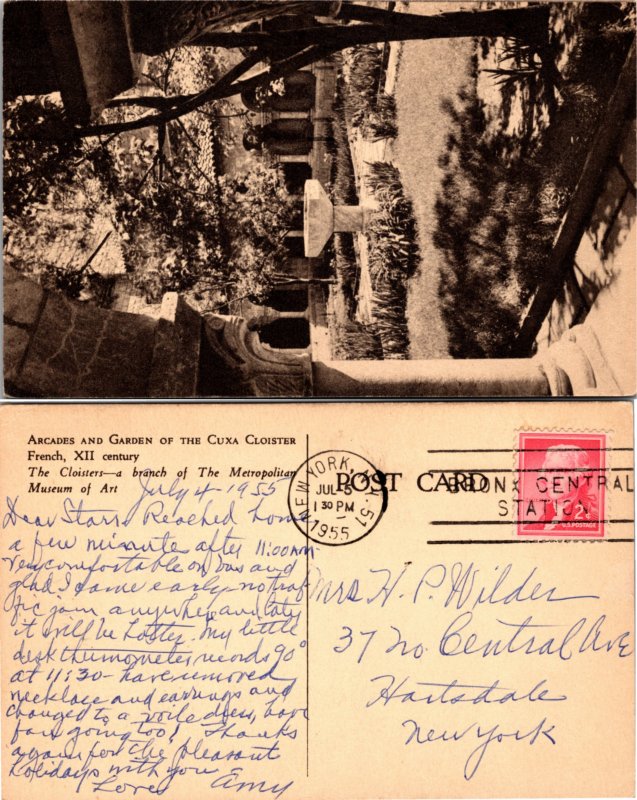 ARCADES AND GARDEN OF THE CUXA CLOISTER
French, XII century
The Cloisters—a branch of The Metropolitan
Museum of Art
July 4 1955
Dear Starrs Reached home
a few minutes after 11:00 AM-
very comfortable on bus and
glad I came early - no traf
fic jam anywhere and later
it will be hotter. My little
desk thermometer records 90°
at 11:30 - have removed
necklace and earrings and
changed to a voile dress, have
fan going too! Thanks
again for the pleasant
holidays with you
Love Amy
POST CARD
NEW YORK, N.Y. 51
JUL 5
1 30 PM
1955
BRONX CENTRAL
STATION
U.S. POSTAGE
Mrs H. P. Wilder
37 No. Central Ave
Hartsdale
New York